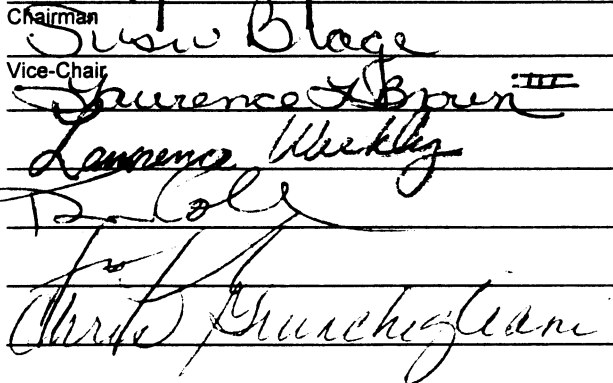 Chairman
Susan Brager
Vice-Chair
Lawrence L Brown III
Lawrence Weekly
Tom
Chris Giunchigliani